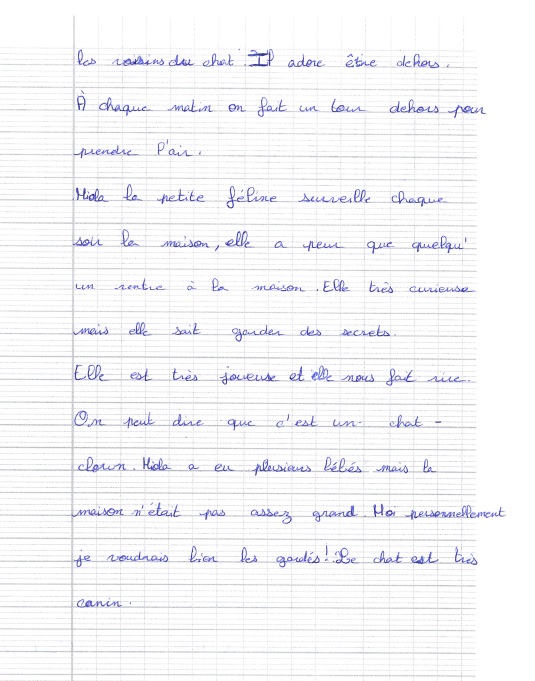 les voisins du chat. Il adore être dehors.
À chaque matin on fait un tour dehors pour
prendre l'air.
Miola la petite féline surveille chaque
soir la maison, elle a peur que quelqu'
un rentre à la maison. Elle très curieuse
mais elle sait garder des secrets.
Elle est très joueuse et elle nous fait rire.
On peut dire que c'est un chat -
clown. Miola a eu plusieurs bébés mais la
maison n'était pas assez grand. Moi personnellement
je voudrais bien les gardés! Le chat est très
canin.